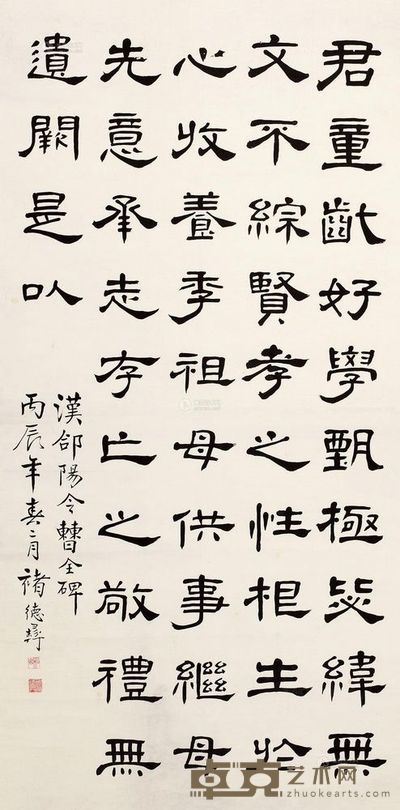 君童齔好學甄極毖緯無
文不綜賢孝之性根生於
心收養季祖母供事繼母
先意承志存亡之敬禮無
遺闕是以
漢郃陽令曹全碑
丙辰年春二月褚德彝
卓克艺术网
zhuokearts.com